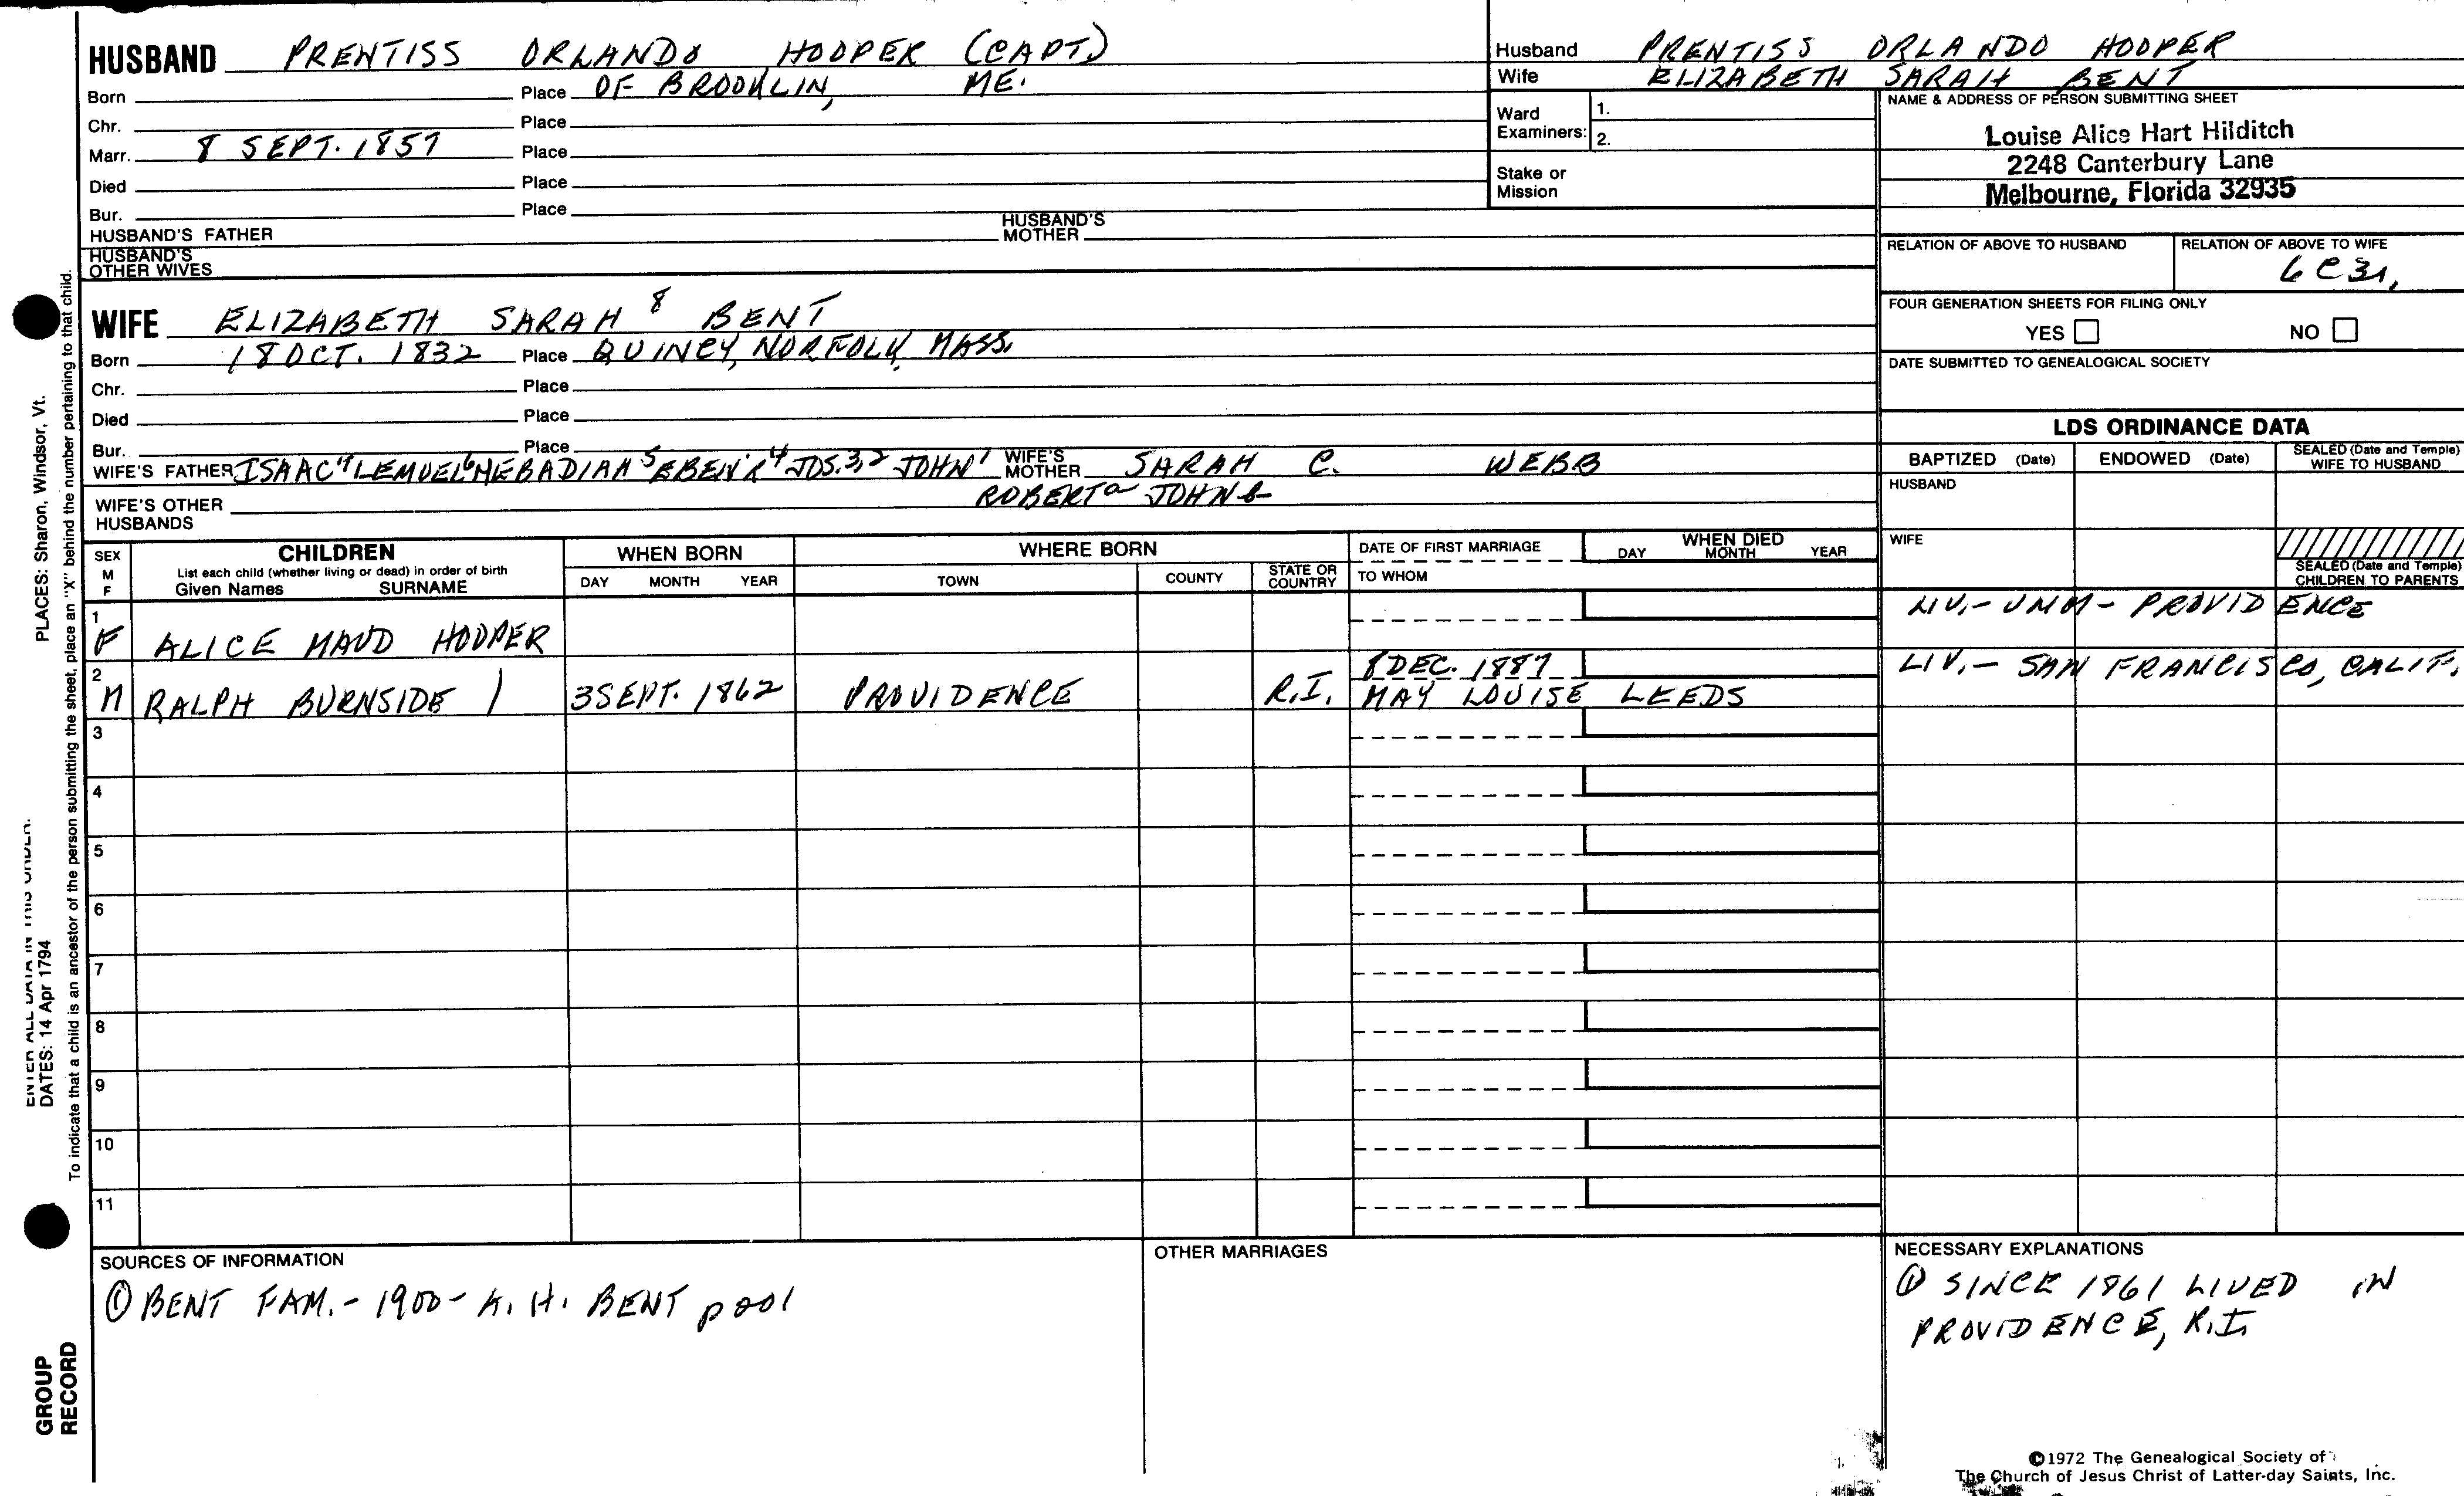 HUSBAND PRENTISS ORLANDO HOOPER (CAPT.)
Born Place OF BROOKLIN, ME.
Chr. Place
Marr. 8 SEPT. 1857 Place
Died Place
Bur. Place
HUSBAND'S FATHER HUSBAND'S MOTHER
HUSBAND'S OTHER WIVES
Husband PRENTISS ORLANDO HOOPER
Wife ELIZABETH SARAH BENT
Ward Examiners: 1.
2.
Stake or Mission
NAME & ADDRESS OF PERSON SUBMITTING SHEET
Louise Alice Hart Hilditch
2248 Canterbury Lane
Melbourne, Florida 32935
RELATION OF ABOVE TO HUSBAND RELATION OF ABOVE TO WIFE
6C3r.
FOUR GENERATION SHEETS FOR FILING ONLY
YES NO
DATE SUBMITTED TO GENEALOGICAL SOCIETY
WIFE ELIZABETH SARAH 8 BENT
Born 18 OCT. 1832 Place QUINCY, NORFOLK, MASS.
Chr. Place
Died Place
Bur. Place
WIFE'S FATHER ISAAC7 LEMUEL6 NEBADIAH5 EBEN'R4 JOS.3,2 JOHN1 WIFE'S MOTHER SARAH C. WEBB
ROBERTa JOHNb
WIFE'S OTHER HUSBANDS
LDS ORDINANCE DATA
BAPTIZED (Date) ENDOWED (Date) SEALED (Date and Temple) WIFE TO HUSBAND
HUSBAND
WIFE
SEALED (Date and Temple) CHILDREN TO PARENTS
SEX M F
CHILDREN
List each child (whether living or dead) in order of birth
Given Names SURNAME
WHEN BORN
DAY MONTH YEAR
WHERE BORN
TOWN COUNTY STATE OR COUNTRY
DATE OF FIRST MARRIAGE
TO WHOM
WHEN DIED
DAY MONTH YEAR
1 F ALICE MAUD HOOPER LIV.- UNM - PROVIDENCE
2 M RALPH BURNSIDE 3 SEPT. 1862 PROVIDENCE R.I. 8 DEC. 1887 LIV. - SAN FRANCISCO, CALIF.
MAY LOUISE LEEDS
3
4
5
6
7
8
9
10
11
SOURCES OF INFORMATION
① BENT FAM. - 1900 - A. H. BENT p201
OTHER MARRIAGES
NECESSARY EXPLANATIONS
① SINCE 1861 LIVED IN
PROVIDENCE, R.I.
©1972 The Genealogical Society of
The Church of Jesus Christ of Latter-day Saints, Inc.
ENTER ALL DATA IN THIS ORDER.
DATES: 14 Apr 1794 PLACES: Sharon, Windsor, Vt.
To indicate that a child is an ancestor of the person submitting the sheet, place an "X" behind the number pertaining to that child.
GROUP
RECORD